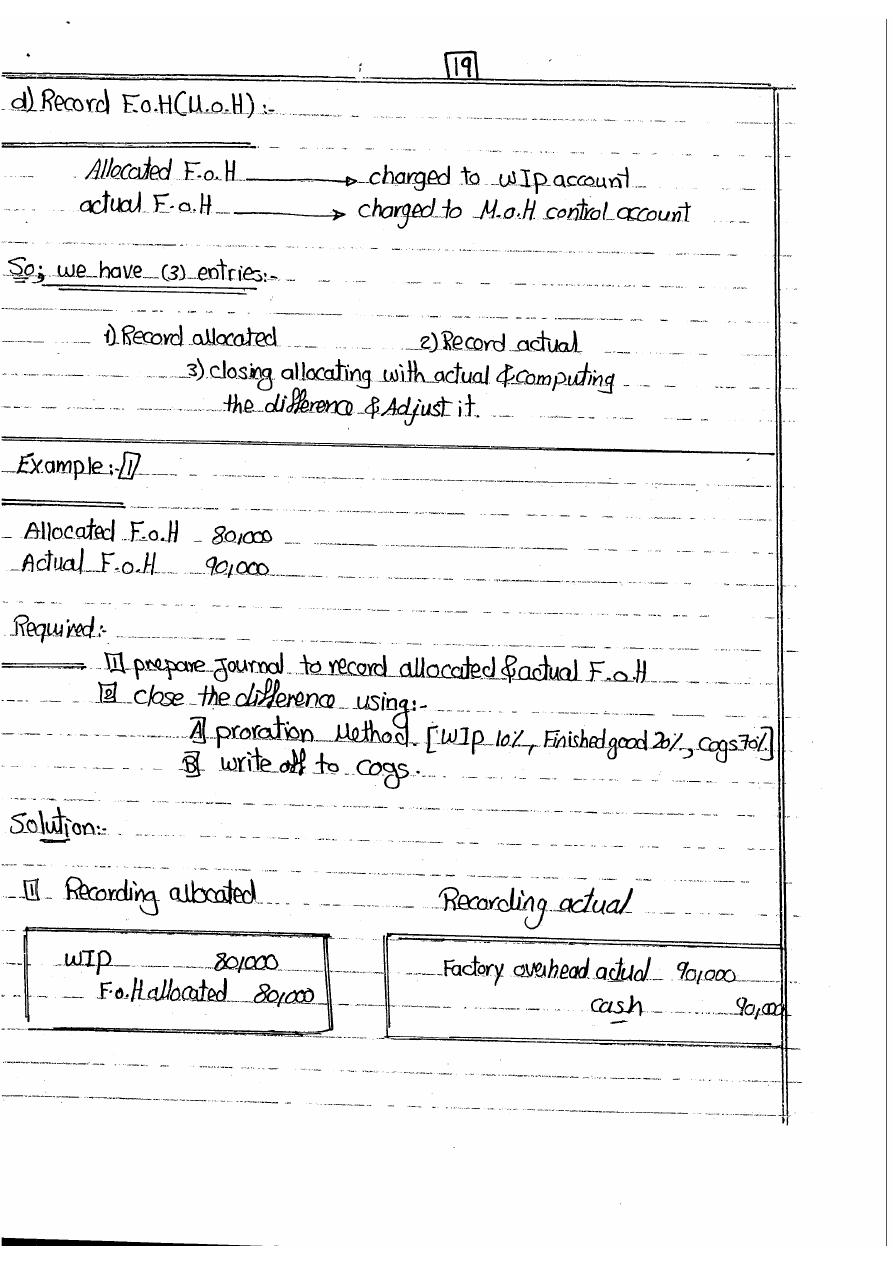 19
d) Record F.o.H(U.o.H) :-
Allocated F.o.H → charged to WIP account
actual F.o.H → charged to M.o.H control account
So; we have (3) entries:-
1) Record allocated 2) Record actual
3) closing allocating with actual & computing
the difference & Adjust it.
Example:- 1
Allocated F.o.H 80,000
Actual F.o.H 90,000
Required:-
1 prepare Journal to record allocated & actual F.o.H
2 close the difference using:-
A proration Method. [WIP 10%, Finished good 20%, Cogs 70%]
B write off to cogs.
Solution:-
1 Recording allocated Recording actual
WIP 80,000 Factory overhead actual 90,000
F.o.H allocated 80,000 cash 90,000